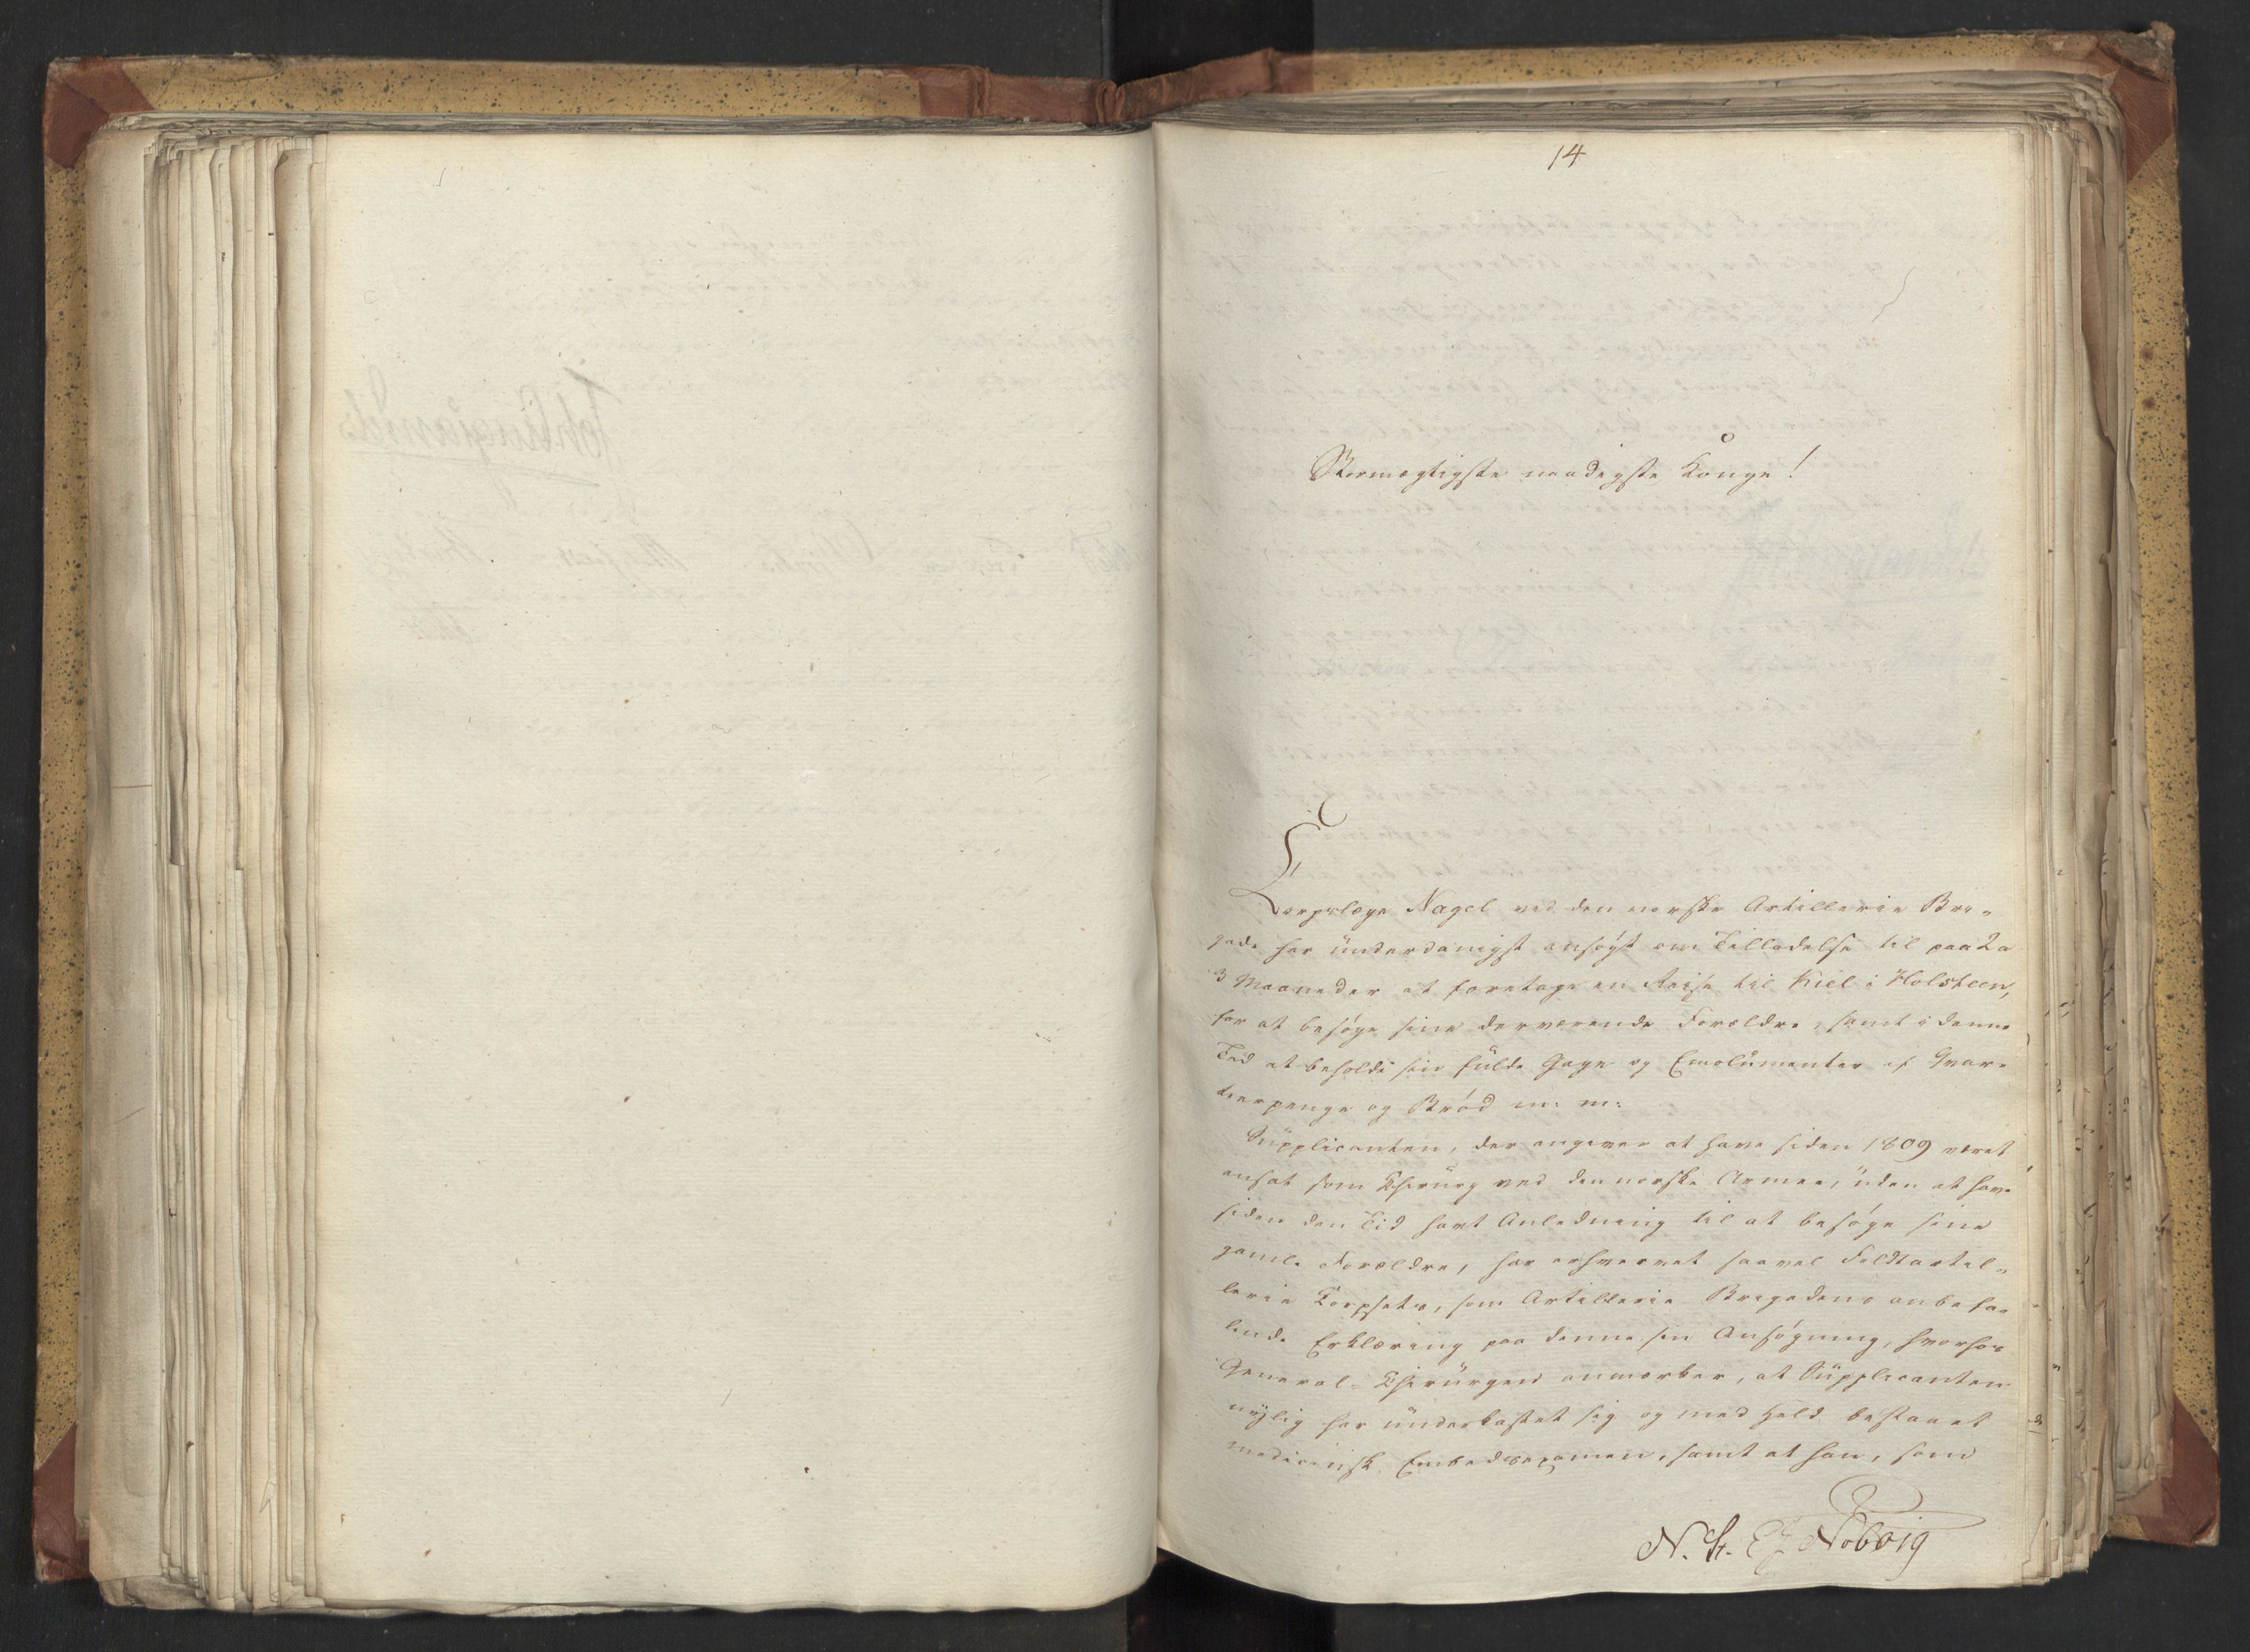 14
Stormægtigste naadigste Konge!
Corpslæge Nagel ved den norske Artillerie Bri-
gade har underdanigst ansøgt om Tilladelse til paa 2 a
3 Maaneder at foretage en Reise til Kiel i Holsteen,
for at besøge sine derværende Forældre, samt i denne
Tid at beholde sin fulde Gage og Emolumenter af Qvar-
teerpenge og Brød m: m:
Supplicanten, der angiver at have siden 1809 været
ansat som Chirurg ved den norske Armee, uden at have
siden den Tid havt Anledning til at besøge sine
gamle Forældre, har erhvervet saavel Feldtartil-
lerie Corpsets, som Artillerie Brigadens anbefa-
lende Erklæring paa denne sin Ansøgning, hvorhos
General-Chirurgen anmærker, at Supplicanten
nylig har underkastet sig og med Held bestaaet
medicinsk Embedsexamen, samt at han, som